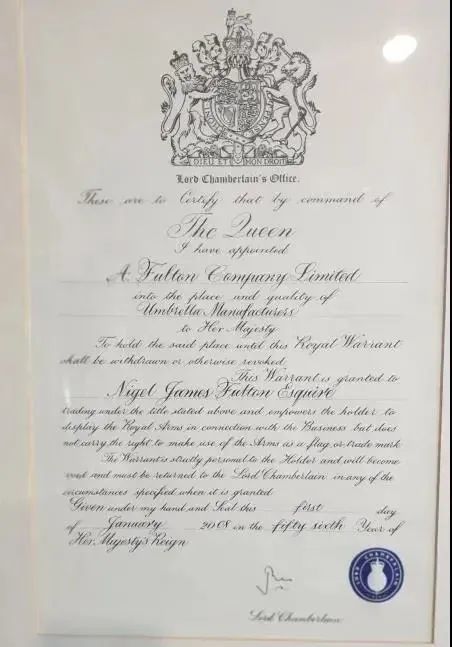 DIEU ET MON DROIT
Lord Chamberlain's Office.
These are to Certify that by command of
The Queen
I have appointed
A. Fulton Company Limited
into the place and quality of
Umbrella Manufacturers
to Her Majesty
To hold the said place until this Royal Warrant
shall be withdrawn or otherwise revoked.
This Warrant is granted to
Nigel James Fulton Esquire
trading under the title stated above and empowers the holder to
display the Royal Arms in connection with the Business but does
not carry the right to make use of the Arms as a flag or trade mark
The Warrant is strictly personal to the Holder and will become
void and must be returned to the Lord Chamberlain in any of the
circumstances specified when it is granted
Given under my hand and Seal this first day
of January 2008 in the fifty sixth Year of
Her Majesty's Reign
LORD CHAMBERLAIN
Lord Chamberlain